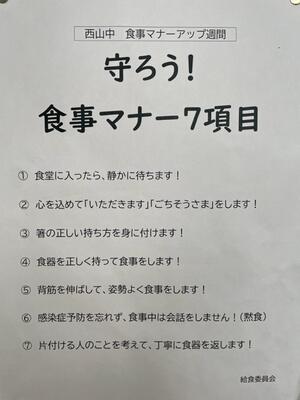 西山中　食事マナーアップ週間
守ろう！
食事マナー７項目
① 食堂に入ったら、静かに待ちます！
② 心を込めて「いただきます」「ごちそうさま」をします！
③ 箸の正しい持ち方を身に付けます！
④ 食器を正しく持って食事をします！
⑤ 背筋を伸ばして、姿勢よく食事をします！
⑥ 感染症予防を忘れず、食事中は会話をしません！（黙食）
⑦ 片付ける人のことを考えて、丁寧に食器を返します！
給食委員会